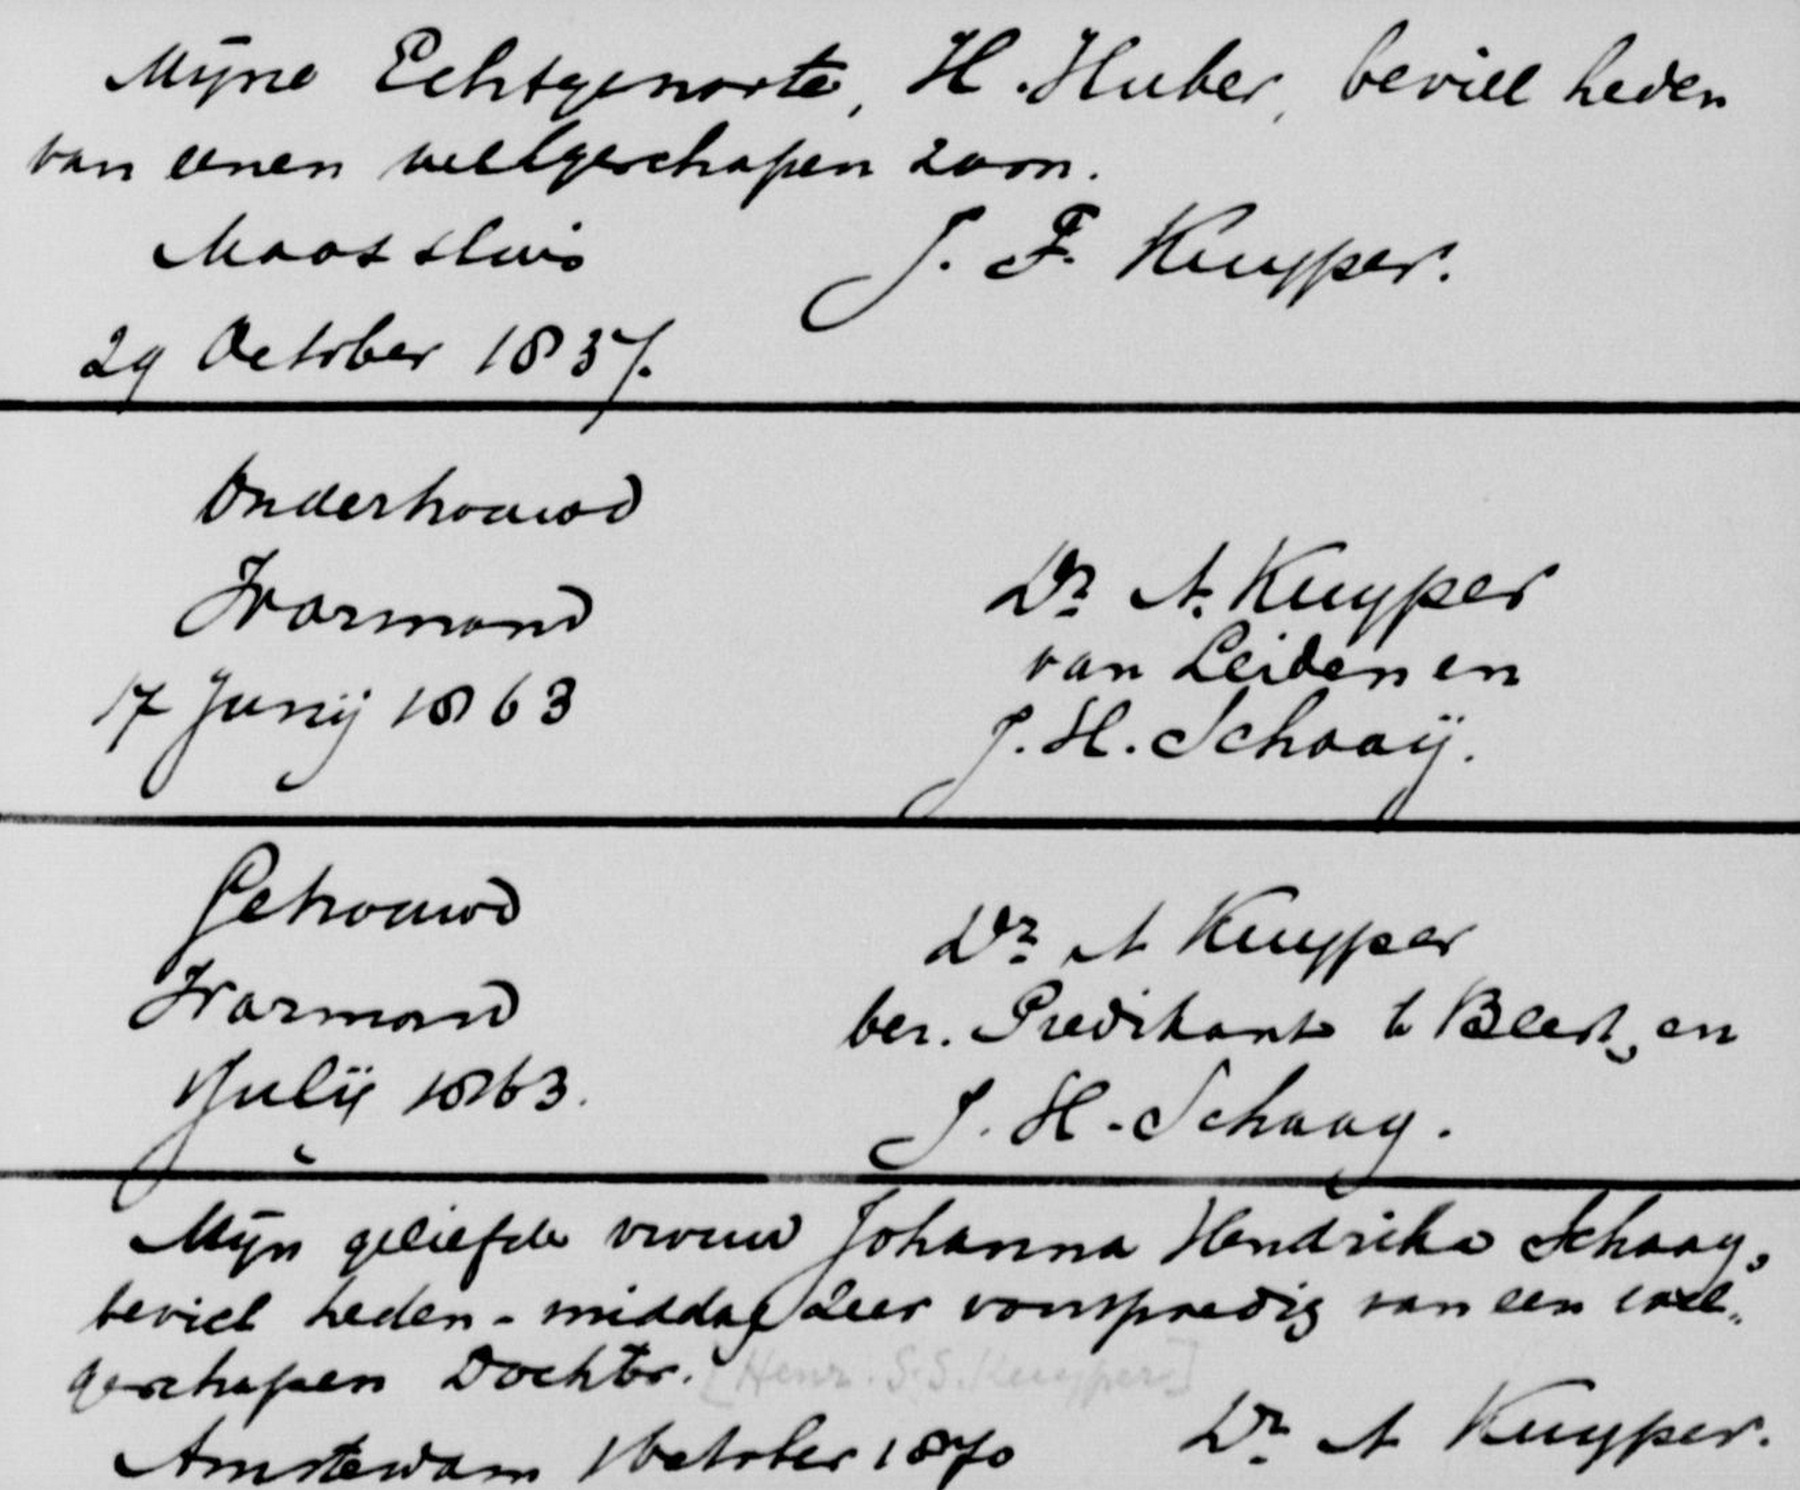 Mijne Echtgenoote, H. Huber, beviel heden
van eenen welgeschapen zoon.
Maassluis J. F. Kuyper.
29 October 1837.
Ondertrouwd
Warmond Dr. A. Kuyper
van Leiden en
17 Junij 1863 J. H. Schaaij.
Getrouwd Dr A Kuyper
Warmond ber. Predikant te Beest, en
1 Julij 1863. J. H. Schaay.
Mijn geliefde vrouw Johanna Hendrika Schaay,
beviel heden-middag zeer voorspoedig van een wel„
geschapen Dochter. [Henr. S.S. Kuyper]
Amsterdam 1 October 1870 Dr. A Kuyper.